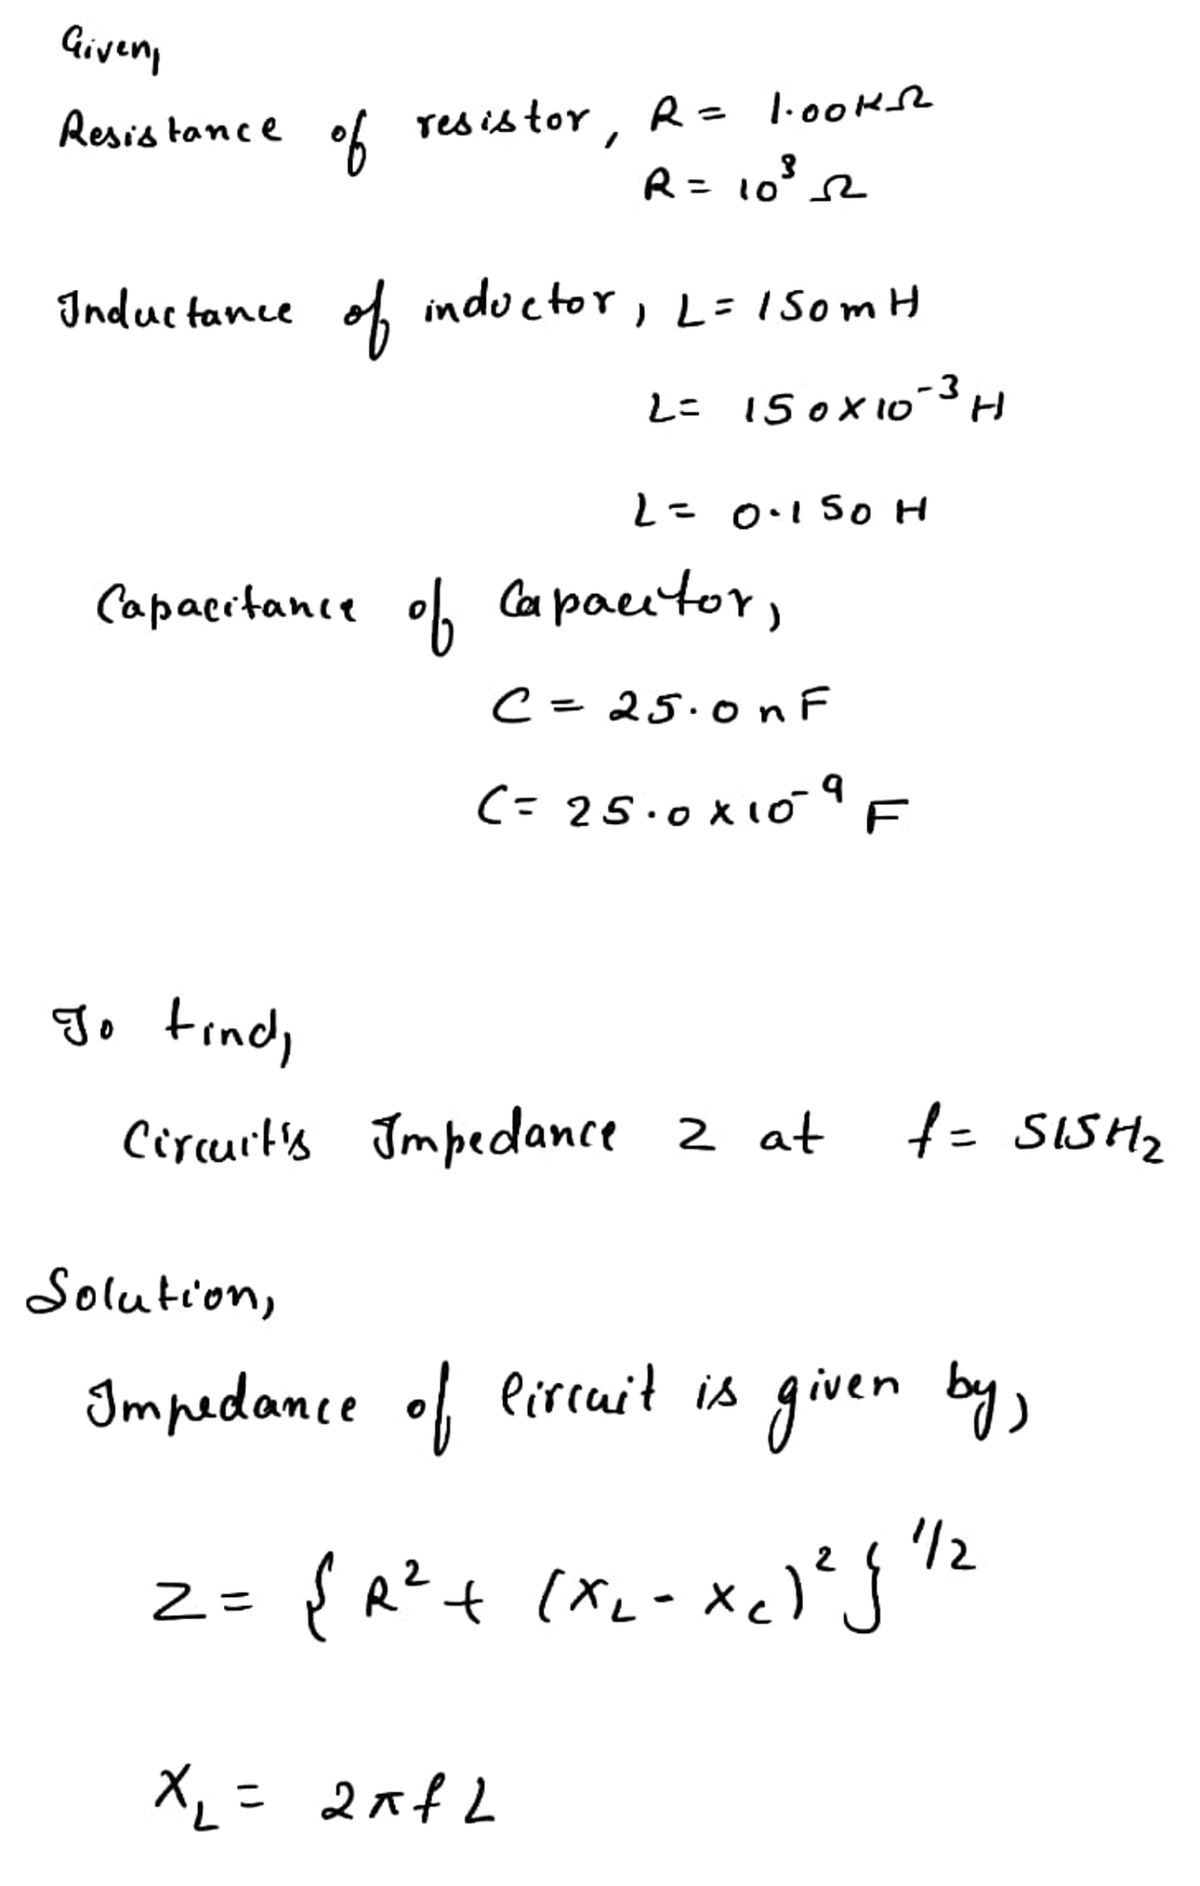 Given,
Resistance of resistor, R = 1.00KΩ
R = 10³ Ω
Inductance of inductor, L = 150mH
L = 150×10⁻³ H
L = 0.150 H
Capacitance of Capacitor,
C = 25.0 nF
C = 25.0×10⁻⁹ F
To find,
Circuit's Impedance Z at f = 515Hz
Solution,
Impedance of Circuit is given by,
Z = { R² + (X_L - X_C)² }^1/2
X_L = 2πfL